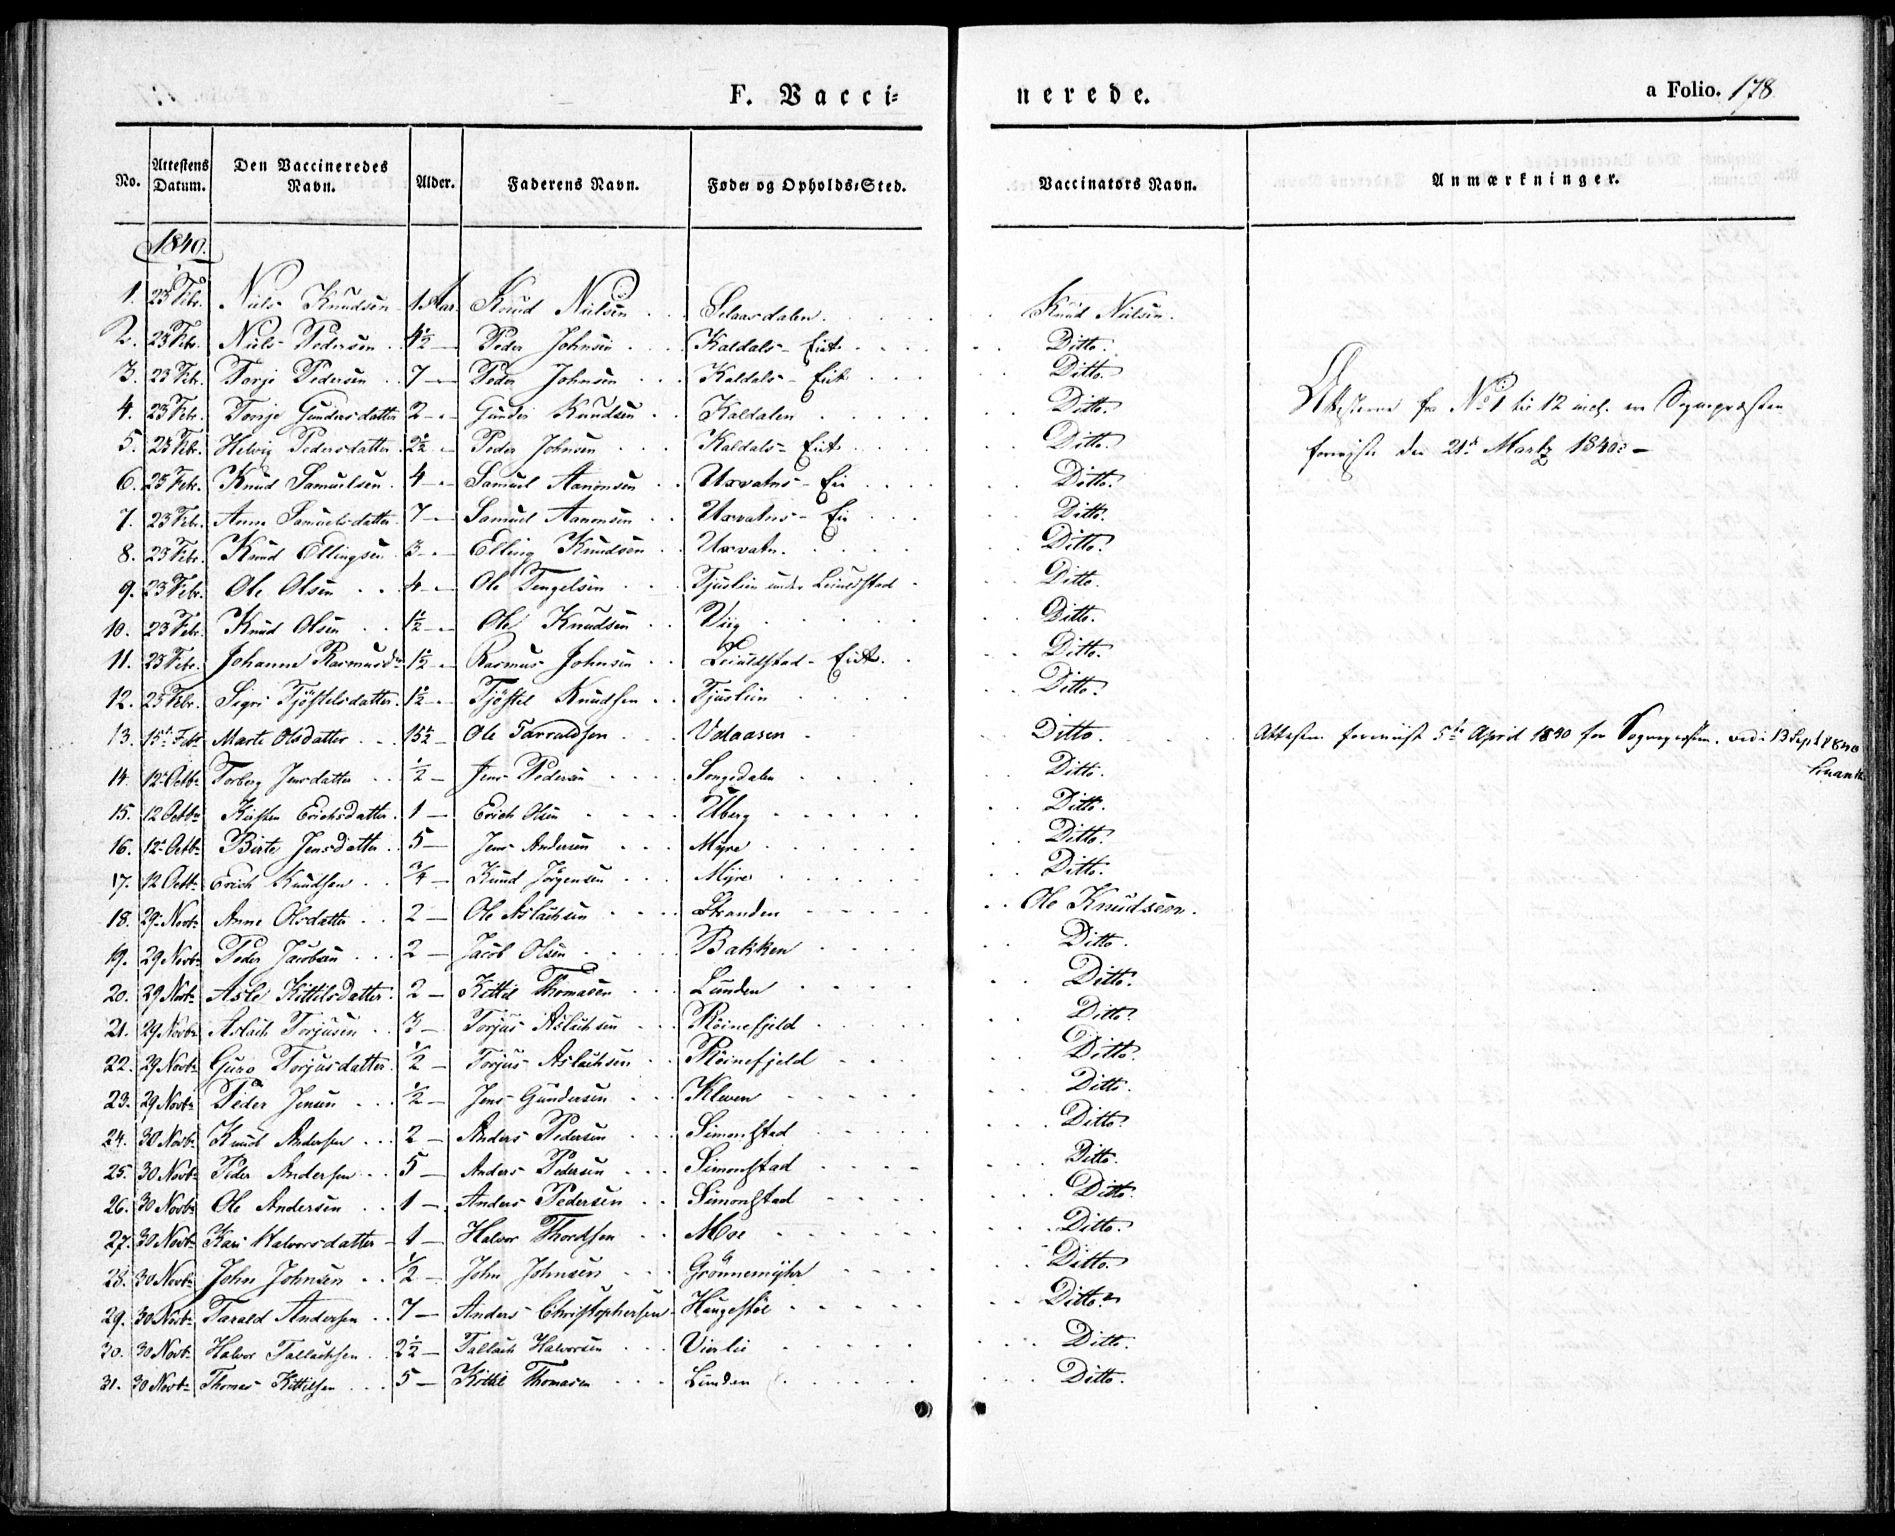 F. Vacci=
nerede.
a Folio. 178
No. | Attestens Datum. | Den Vaccineredes Navn. | Alder. | Faderens Navn. | Føde- og Opholds-Sted. | Vaccinators Navn. | Anmærkninger.
1840.
1. 23 Febr. Niels Knudsen 1 Aar. Knud Nielsen Selaasdalen. Knud Nielsen.
2. 23 Febr. Niels Pedersen 4½ — Peder Johnsen Kaldals- Eiet Ditto.
3. 23 Feb. Torje Pedersen 7 — Peder Johnsen Kaldals- Eiet Ditto.
4. 23 Febr. Torje Gundersdatter 2 — Gunder Knudsen Kaldalen Ditto. Attesterne fra No 1 til 12 incl. ere Sognepræsten
5. 23 Febr. Helvig Pedersdatter 2½ — Peder Johnsen Kaldals- Eiet Ditto. foreviiste den 21de Martz 1840: —
6. 23 Febr. Knud Samuelsen 4 — Samuel Aanonsen Uxvatns- Eie Ditto.
7. 23 Febr. Anne Samuelsdatter 7 — Samuel Aanonsen Uxvatns- Eie Ditto.
8. 23 Febr. Knud Ellingsen 3 — Elling Knudsen Uxvatn. Ditto.
9. 23 Febr. Ole Olsen 4 — Ole Tengelsen Tjuslien under Ditto.
10. 23 Febr. Knud Olsen 1½ — Ole Knudsen Vig Ditto.
11. 23 Febr. Johanne Rasmusd. 1½ — Rasmus Johnsen Eiet. Ditto.
12. 23 Febr. Sigri Tjøstelsdatter 1½ — Tjøstel Knudsen Tjuslien Ditto.
13. 15 Febr Marte Olsdatter 15½ — Ole Tarraldsen Udaasen Ditto. Attesten foreviist 5te April 1840 for Sognepræsten. 13 Sept 1840
14. 12 Octbr Torborg Jensdatter ½ — Jens Pedersen Songedalen Ditto.
15. 12 Octbr Kirsten Erichsdatter 1 — Erich Olsen Uberg Ditto.
16. 12 Octbr Birte Jensdatter 5 — Jens Andersen Myre Ditto.
17. 12 Octbr Erich Knudsen ¾ — Knud Jørgensen Myre Ditto.
18. 29 Novbr Anne Olsdatter 2 — Ole Aslachsen Stranden Ole Knudsen.
19. 29 Novbr Peder Jacobsen 2 — Jacob Olsen Bakken Ditto.
20. 29 Novbr Asle Kittilsdatter 2 — Kittil Thomasen Lunden Ditto.
21. 29 Novbr Aslach Torjusen 3 — Torjus Aslachsen Røinefjeld Ditto.
22. 29 Novbr Guro Torjusdatter ½ — Torjus Aslachsen Røinefjeld Ditto.
23. 29 Novbr Peder Jensen ½ — Jens Gundersen Kleven Ditto.
24. 30 Novbr Knud Andersen 2 — Anders Pedersen Simonstad Ditto.
25. 30 Novbr Peder Andersen 5 — Anders Pedersen Simonstad Ditto.
26. 30 Novbr Ole Andersen 1 — Anders Pedersen Simonstad Ditto.
27. 30 Novbr Kari Halvorsdatter 1 — Halvor Thordsen Moe Ditto.
28. 30 Novbr John Johnsen ½ — John Johnsen Grønnemyhr Ditto.
29. 30 Novbr Tarald Andersen 7 — Anders Christophersen Haugestøe Ditto.
30. 30 Novbr Halvor Tallachsen 2½ — Tallach Halvorsen Vierlie Ditto.
31. 30 Novbr Thomas Kittilsen 5 — Kittil Thomasen Lunden Ditto.